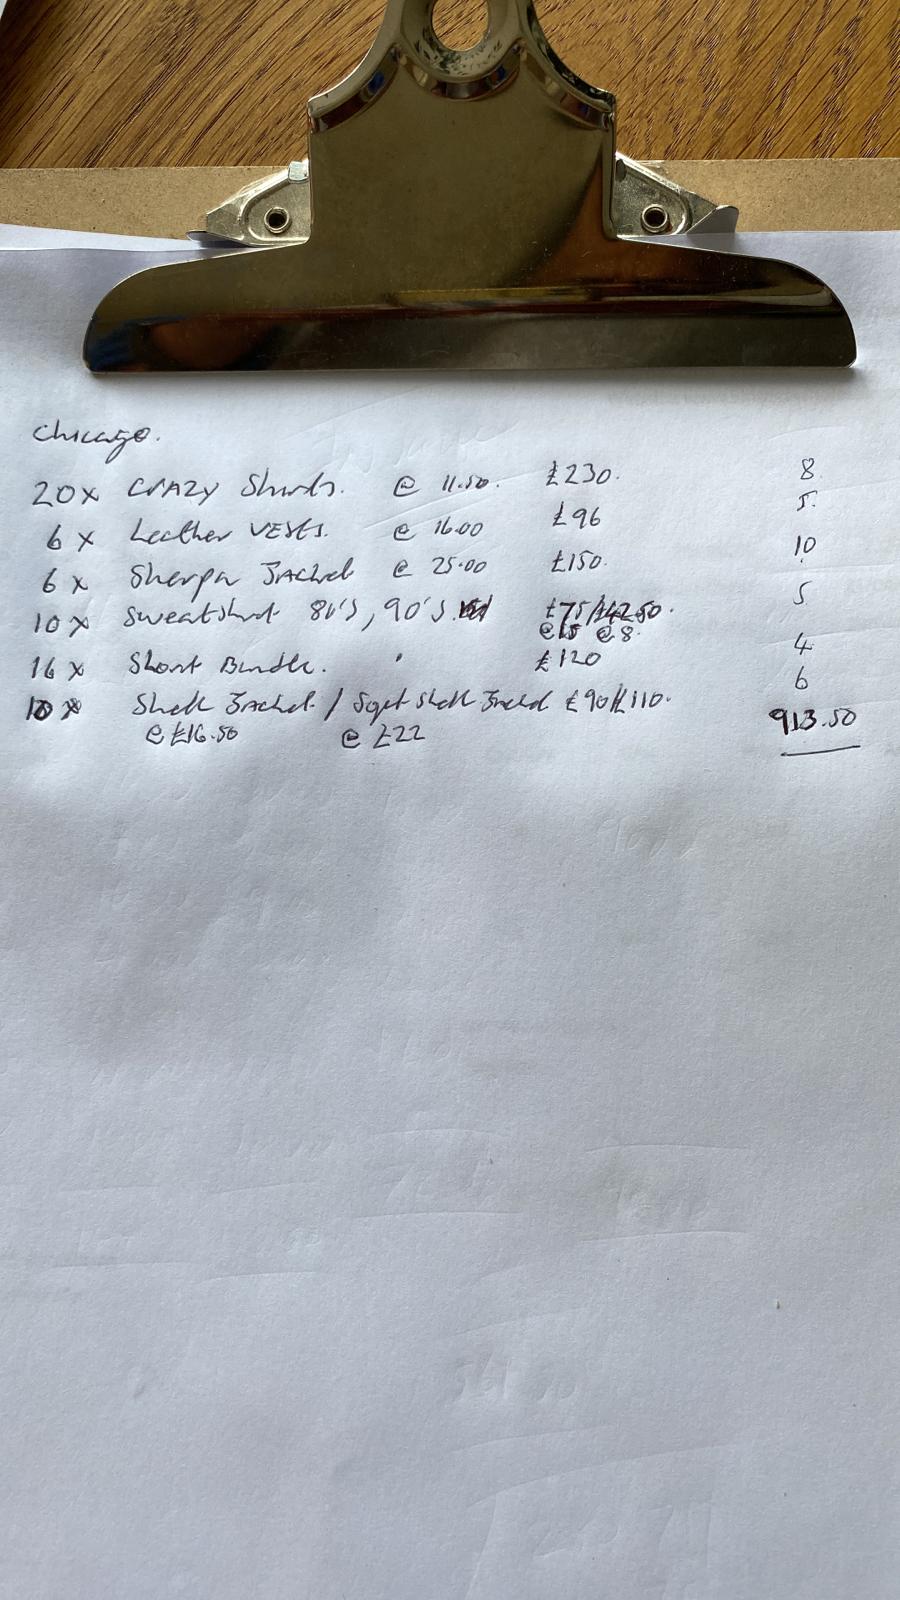 Chicago.
20x CRAZY Shirts. @ 11.50. £230. 8
6 x Leather VESTS. @ 16.00 £96 5.
6 x Sherpa Jacket @ 25.00 £150. 10
10x Sweatshirt 80's, 90's. £75/£42.50. 5
@15 @8.
16 x Short Bundle. £120 4
10x Shell Jacket. / Sqrt Shell Jacket £90/£110. 6
@ £16.50 @ £22 913.50